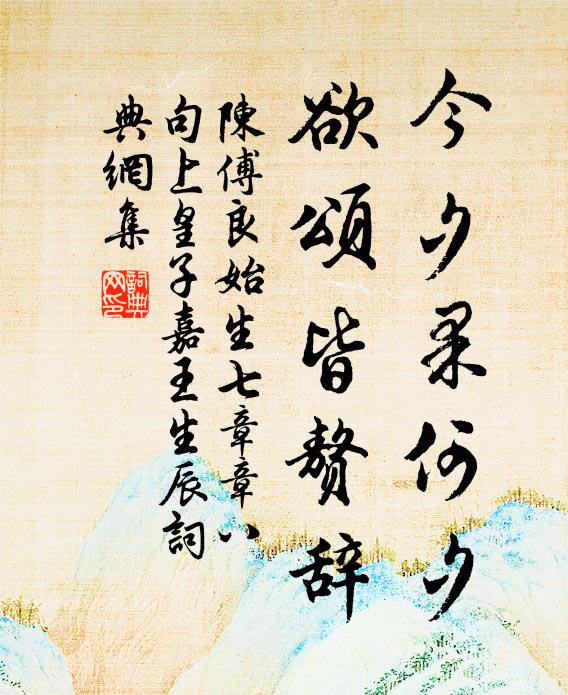 今夕果何夕
欲頌皆赘辞
陳傅良始生七章章八
句上皇子嘉王生辰詞
典網集
詞典网印